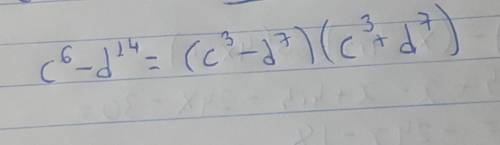 c⁶-d¹⁴= (c³-d⁷)(c³+d⁷)